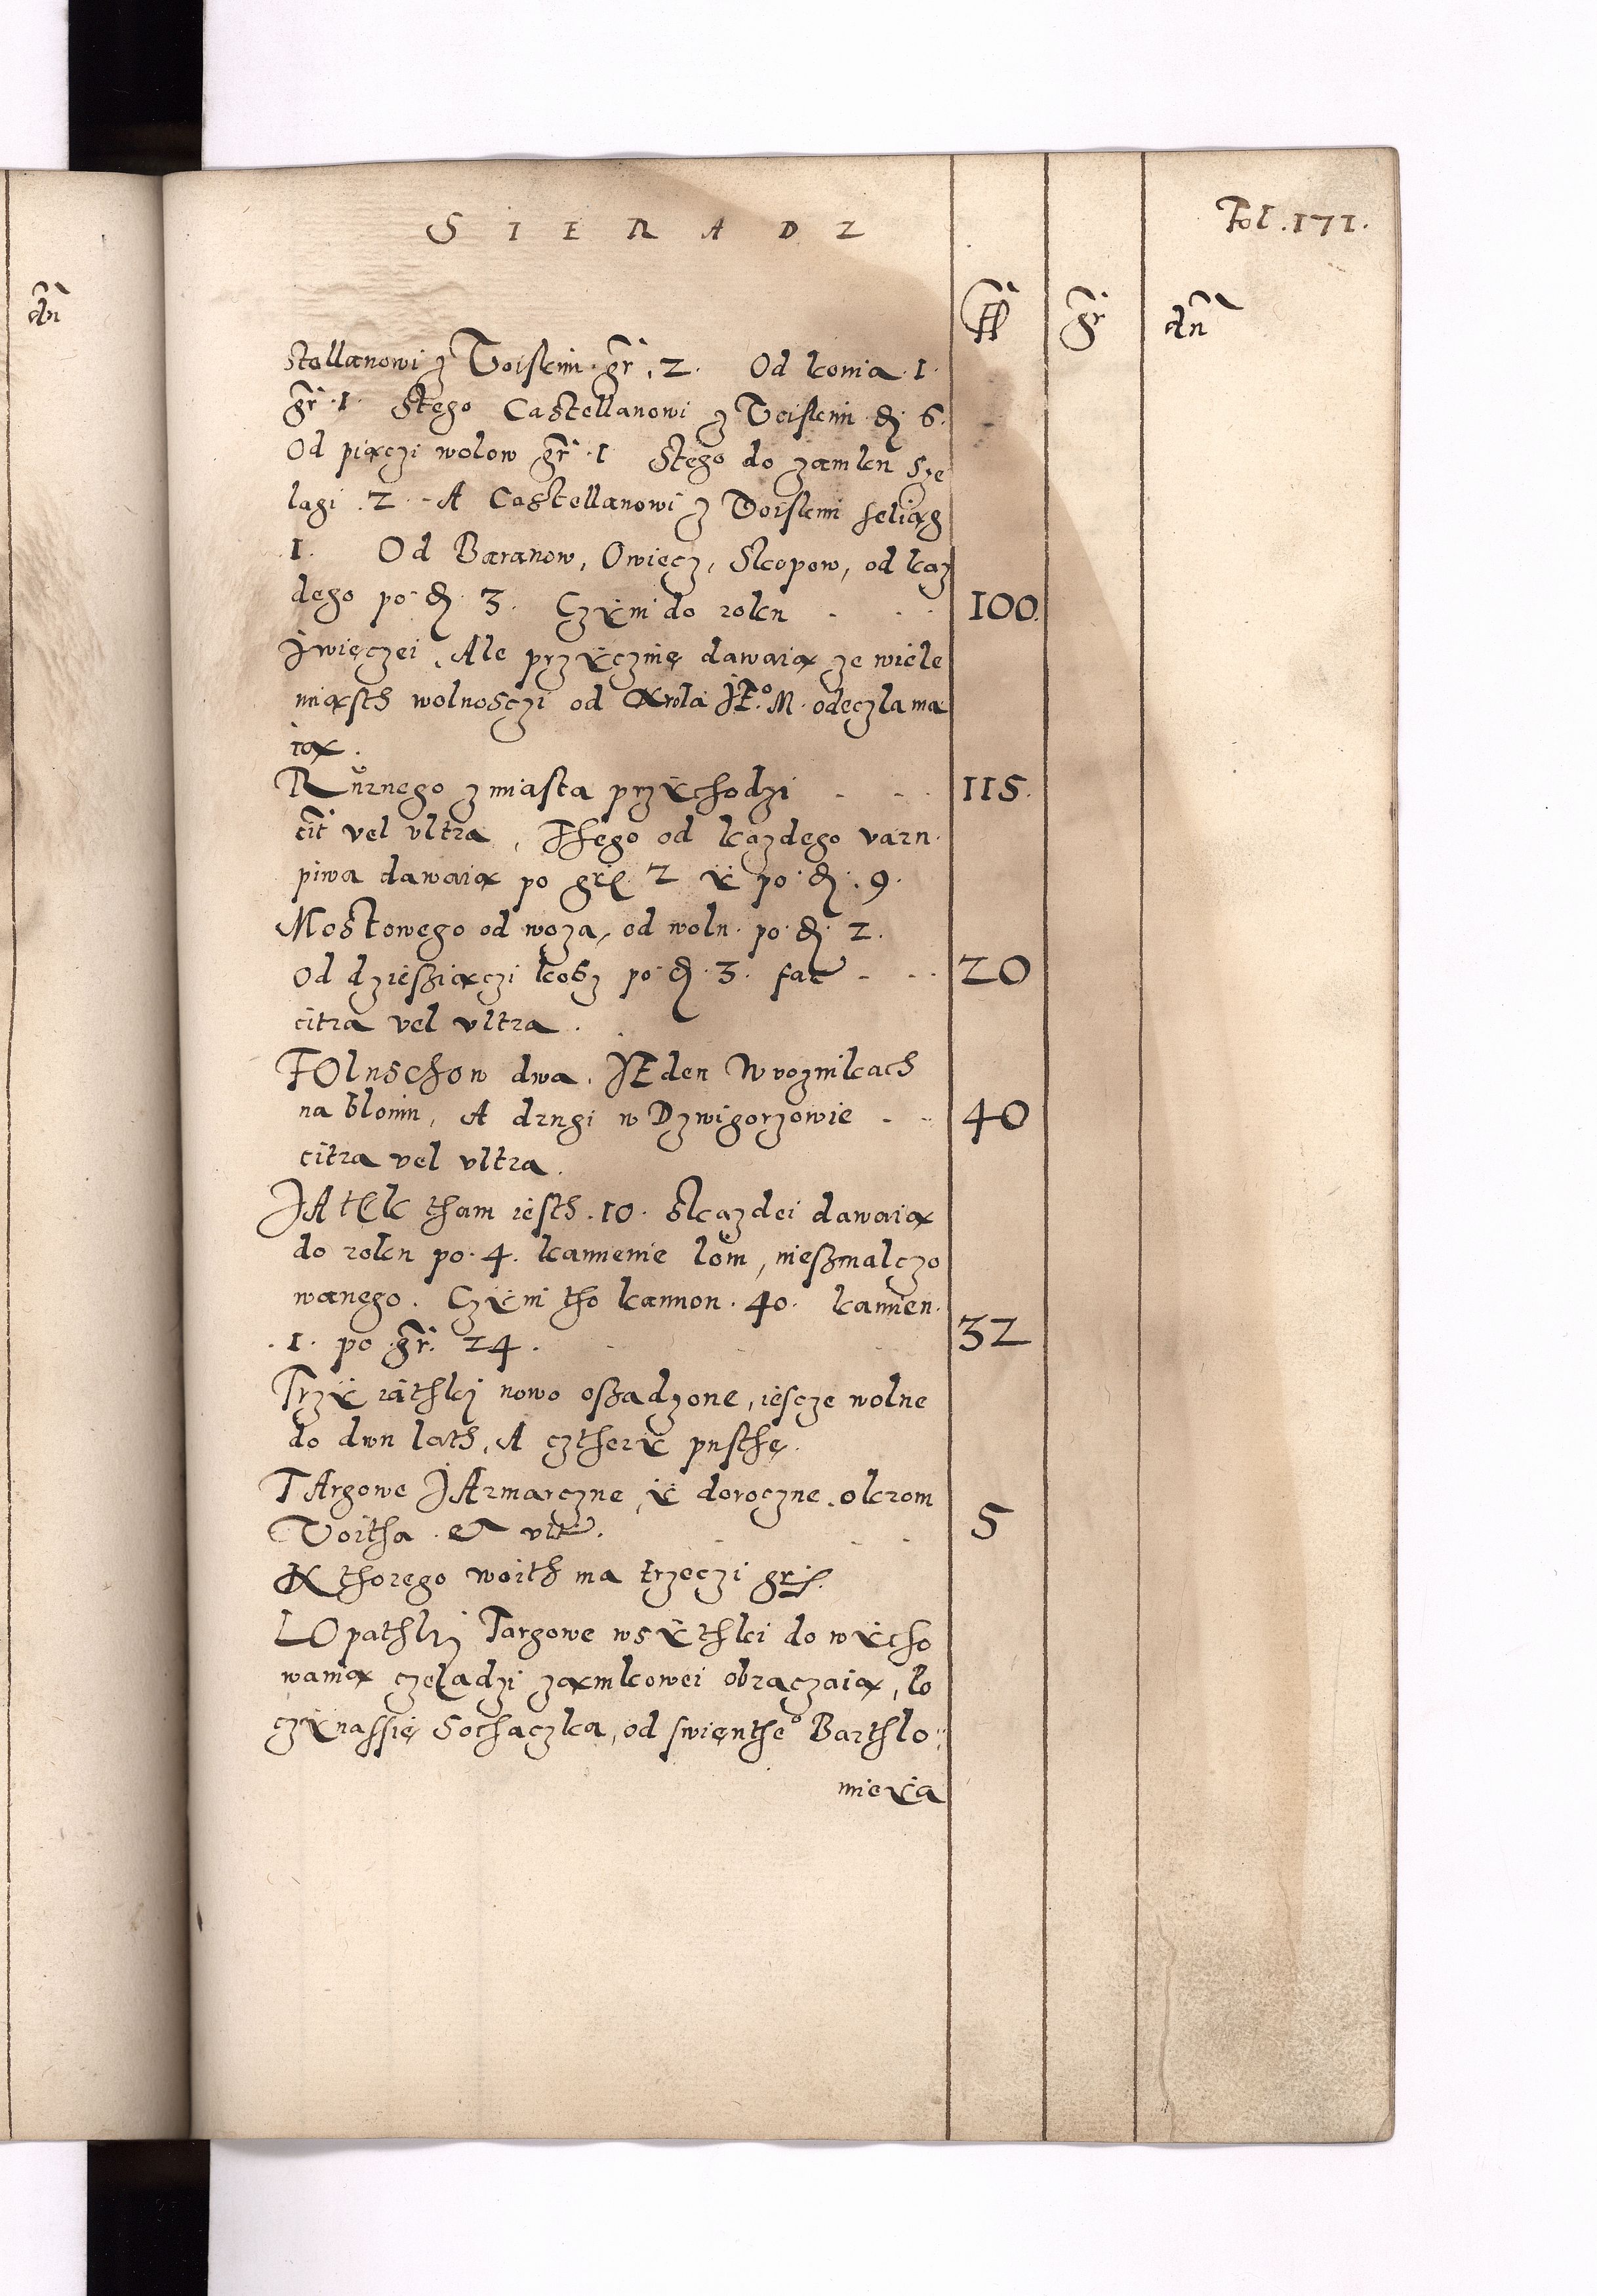 SIERADZ
Fol. 171.
fl gr dn
dn
stellanowi z Voislcim gr. 2. Od konia 1.
gr. 1. Stego Castellanowi z Voislcim đ. 6.
Od piączi wolow gr. 1 Stego do zamku sze
lagi 2. A Castellanowi z Voislcim seliąg
1. Od Baranow, Owiecz, Skopow, od kaz
dego po đ. 3. Czÿni do roku - - - 100.
J więczei. Ale przÿcznię dawaią ze wiele
miasth wolnosczi od Krola JE.º M. odeczla ma
ią.
Rurnego z miasta przÿchodzi - - - 115.
cit vel vltra, Thego od kazdego varu.
piwa dawaią po gr. 2 ÿ po đ. 9.
Mostowego od woza, od wolu. po đ. 2.
Od dziesziączi kosz po đ. 3. fac - - - 20
citra vel vltra.
FOluschow dwa. JEden W woznikach
na błoniu, A drugi w Dzwigorzowie - - 40
citra vel vltra.
JAtek tham iesth. 10. Skazdei dawaią
do roku po. 4. kamienie loiu, nieszmalczo
wanego. Czÿni tho kamion. 40. kamien.
1. po gr. 24. 32
Trzÿ iathki nowo oszadzone, iescze wolne
do dwu lath, A cztherÿ pusthe.
TArgowe JArmarczne, ÿ doroczne. okrom
Voitha. et vlt. - - 5
Kthorego woith ma trzeczi gr.
LOpathki Targowe wsÿthki do wÿcho
wania czeladzi zamkowei obraczaią, po
czÿnassię Sochaczka, od swienthe.º Barthlo:
mieÿa